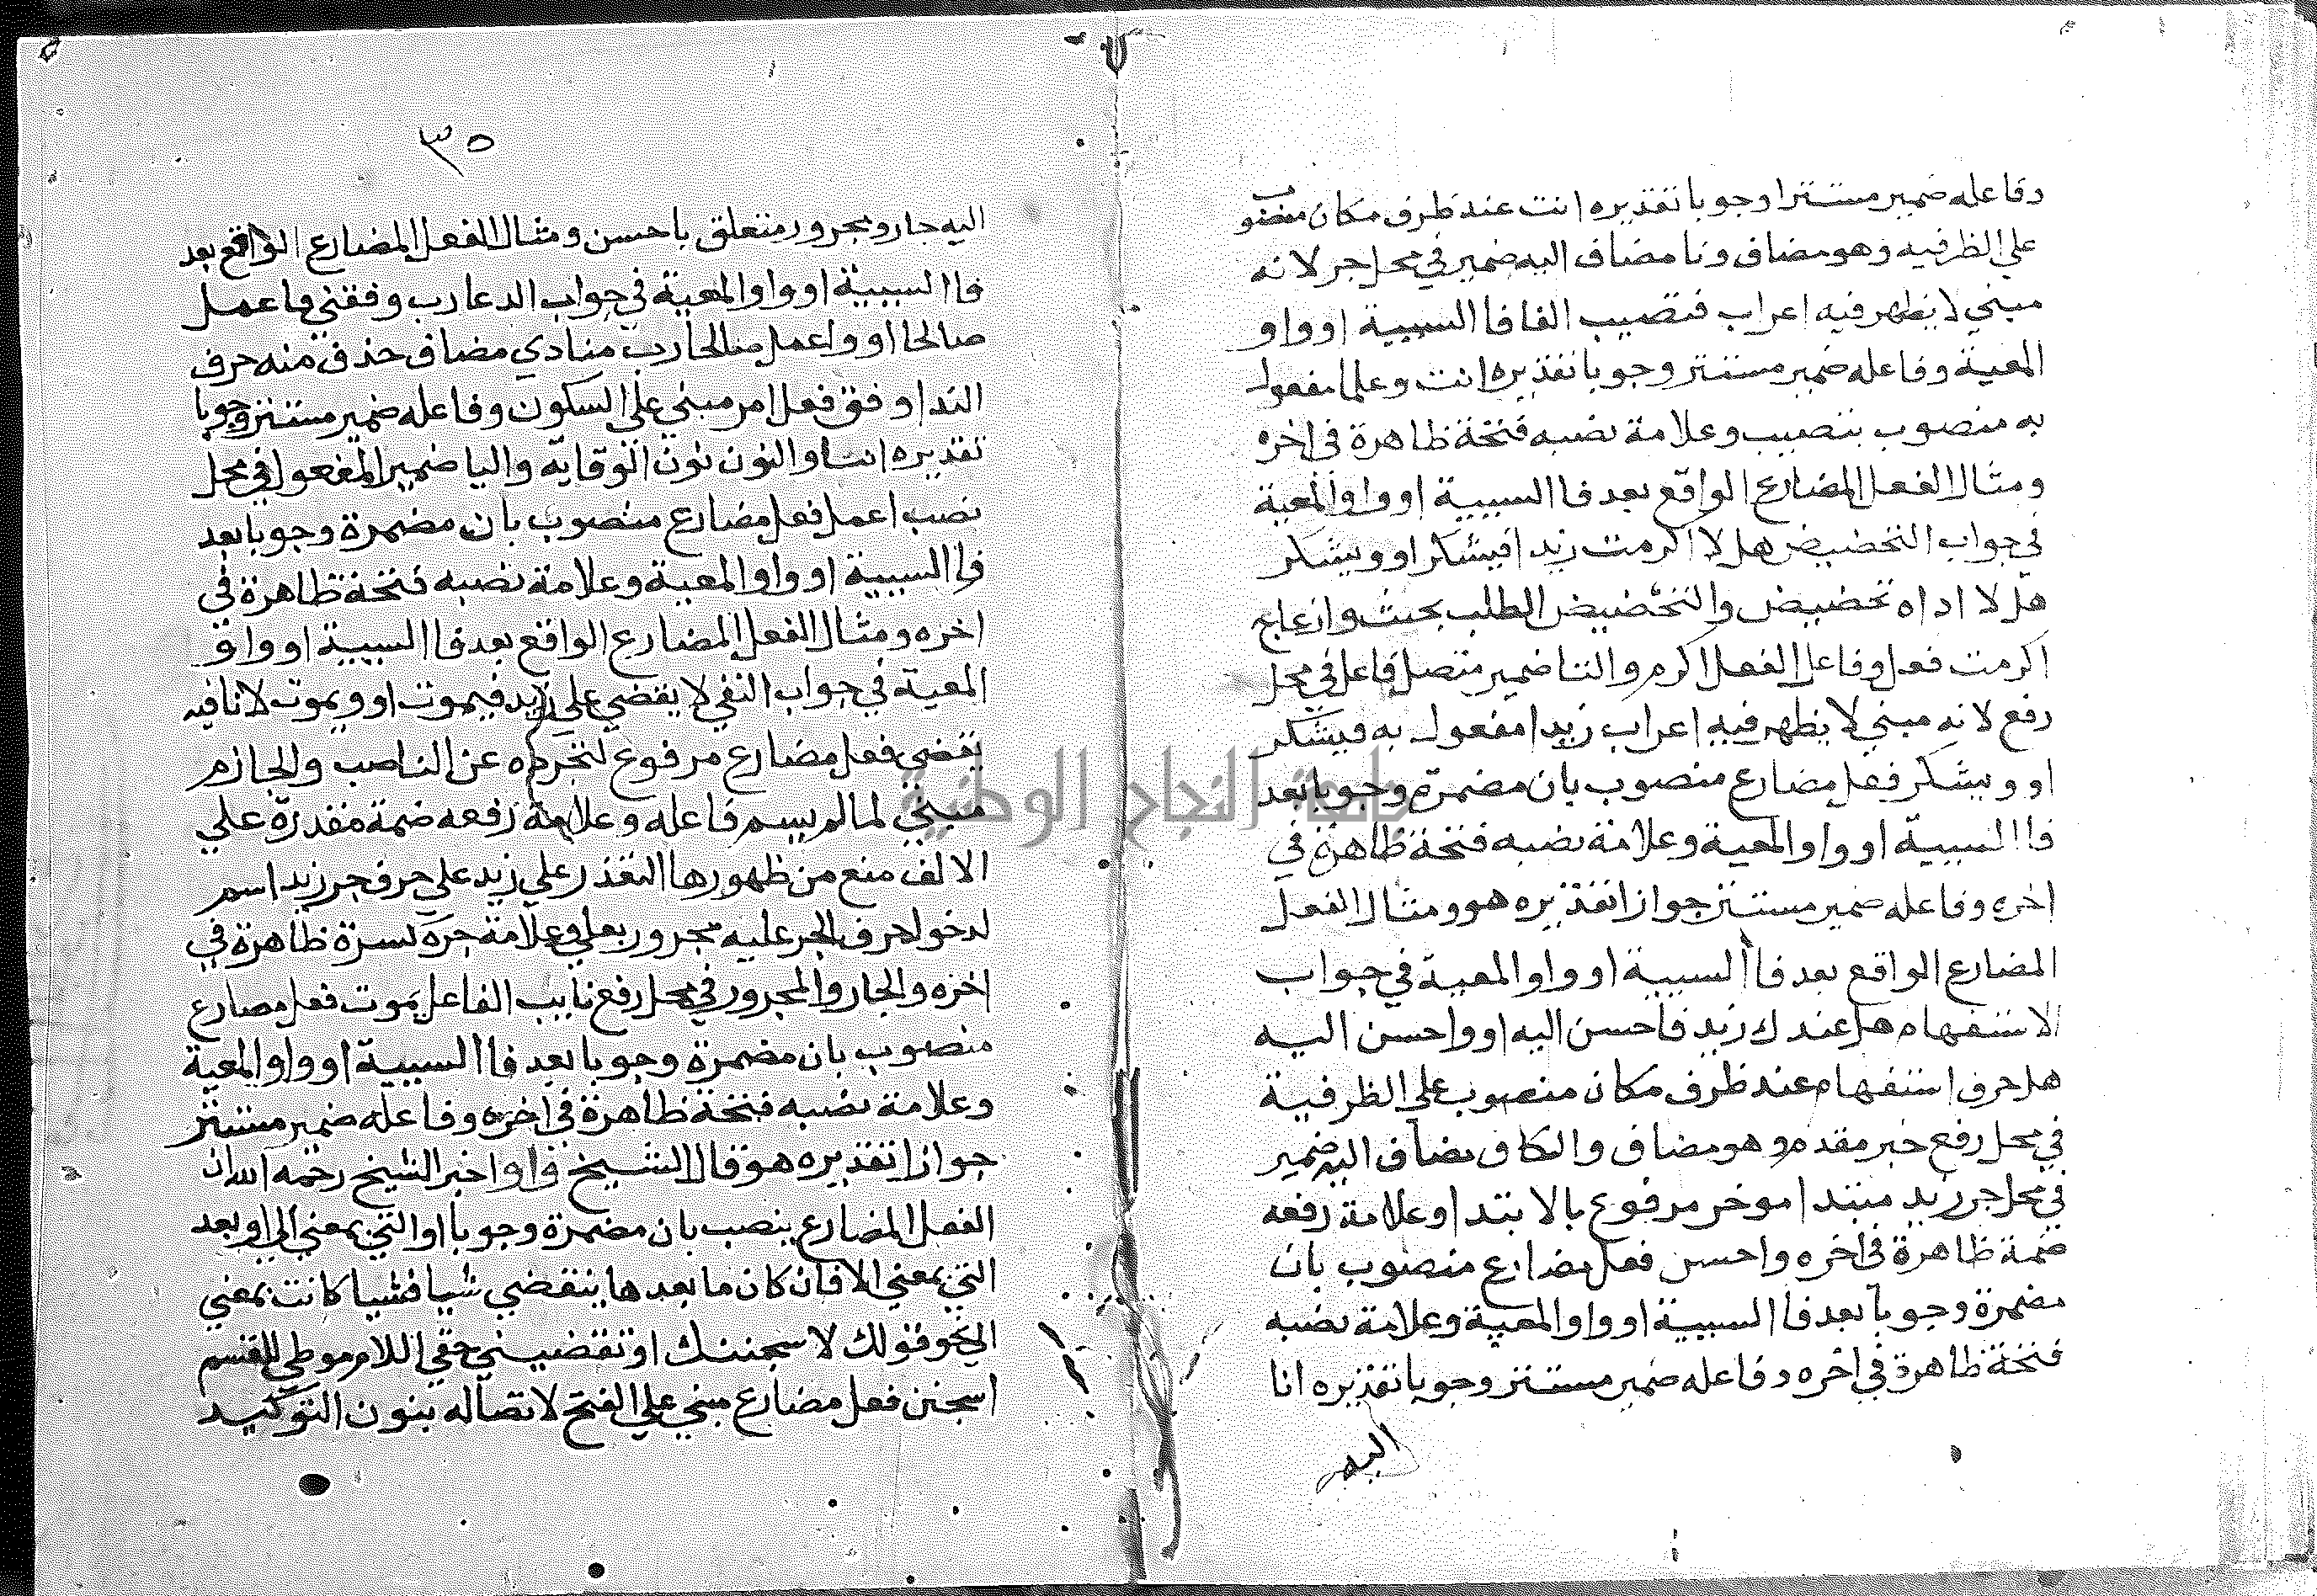 وفاعله ضمير مستترا وجوبا تقديره انت عند ظرف مكان منصوب
علي الظرفيه وهو مضاف ونا مضاف اليه ضمير في محل جر لانه
مبني لا يظهر فيه اعراب فتصيب الفا فا السببية او واو
المعية وفاعله ضمير مستتر وجوبا تقديره انت وعلما مفعول
به منصوب بتصيب وعلامة نصبه فتحة ظاهرة في اخره
ومثال الفعل المضارع الواقع بعد فا السببية او واو المعية
في جواب التحضيض هلا اكرمت زيدا فيشكر او ويشكر
هلا اداه تحضيض والتحضيض الطلب بحث وازعاج
اكرمت فعل وفاعل الفعل اكرم والتا ضمير متصل فاعل في محل
رفع لانه مبني لا يظهر فيه اعراب زيدا مفعول به فيشكر
او ويشكر فعل مضارع منصوب بان مضمرة وجوبا بعد
فا السببية او واو المعية وعلامة نصبه فتحة ظاهرة في
اخره وفاعله ضمير مستتر جوازا تقديره هو ومثال الفعل
المضارع الواقع بعد فا السببية او واو المعية في جواب
الاستفهام هل عندك زيد فاحسن اليه او واحسن اليه
هل حرف استفهام عند ظرف مكان منصوب علي الظرفية
في محل رفع خبر مقدم وهو مضاف والكاف مضاف اليه ضمير
في محل جر زيد مبتدا موخر مرفوع بالابتدا وعلامة رفعه
ضمة ظاهرة في اخره واحسن فعل مضارع منصوب بان
مضمرة وجوبا بعد فا السببية او واو المعية وعلامة نصبه
فتحة ظاهرة في اخره وفاعله ضمير مستتر وجوبا تقديره انا
اليه
٣٥
اليه جار ومجرور متعلق باحسن ومثال الفعل المضارع الواقع بعد
فا السببية او واو المعية في جواب الدعا رب وفقني فاعمل
صالحا او واعمل صالحا رب منادي مضاف حذف منه حرف
الندا وفق فعل امر مبني علي السكون وفاعله ضمير مستتر وجوبا
تقديره انت والنون نون الوقايه واليا ضمير المفعول في محل
نصب اعمل فعل مضارع منصوب بان مضمرة وجوبا بعد
فا السببية او واو المعية وعلامة نصبه فتحة ظاهرة في
اخره ومثال الفعل المضارع الواقع بعد فا السببية او واو
المعية في جواب النفي لا يقضي علي زيد فيموت او ويموت لا نافيه
يقضي فعل مضارع مرفوع لتجرده عن الناصب والجازم
مبني لما لم يسم فاعله وعلامة رفعه ضمة مقدرة علي
الالف منع من ظهورها التعذر علي زيد علي حرف جر زيد اسم
لدخول حرف الجر عليه مجرور بعلي وعلامة جره كسرة ظاهرة في
اخره والجار والمجرور في محل رفع نايب الفاعل يموت فعل مضارع
منصوب بان مضمرة وجوبا بعد فا السببية او واو المعية
وعلامة نصبه فتحة ظاهرة في اخره وفاعله ضمير مستتر
جوازا تقديره هو قال الشيخ واو اخبر الشيخ رحمه الله ان
الفعل المضارع ينصب بان مضمرة وجوبا او التي بمعني الي او بعد
التي بمعني الا فان كان ما بعدها ينقضي شيا فشيا كانت بمعني
الي نحو قولك لاسجننك او تقضيني حقي اللام موطي للقسم
اسجنن فعل مضارع مبني علي الفتح لاتصاله بنون التوكيد
جامعة النجاح الوطنية